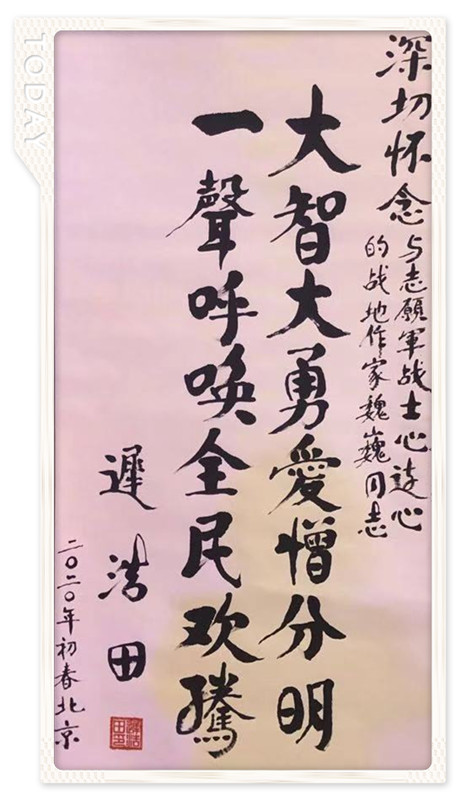 深切怀念
与志願軍战士心連心
的战地作家魏巍同志
大智大勇愛憎分明
一聲呼唤全民欢騰
遲浩田
二〇二〇年初春北京
TODAY